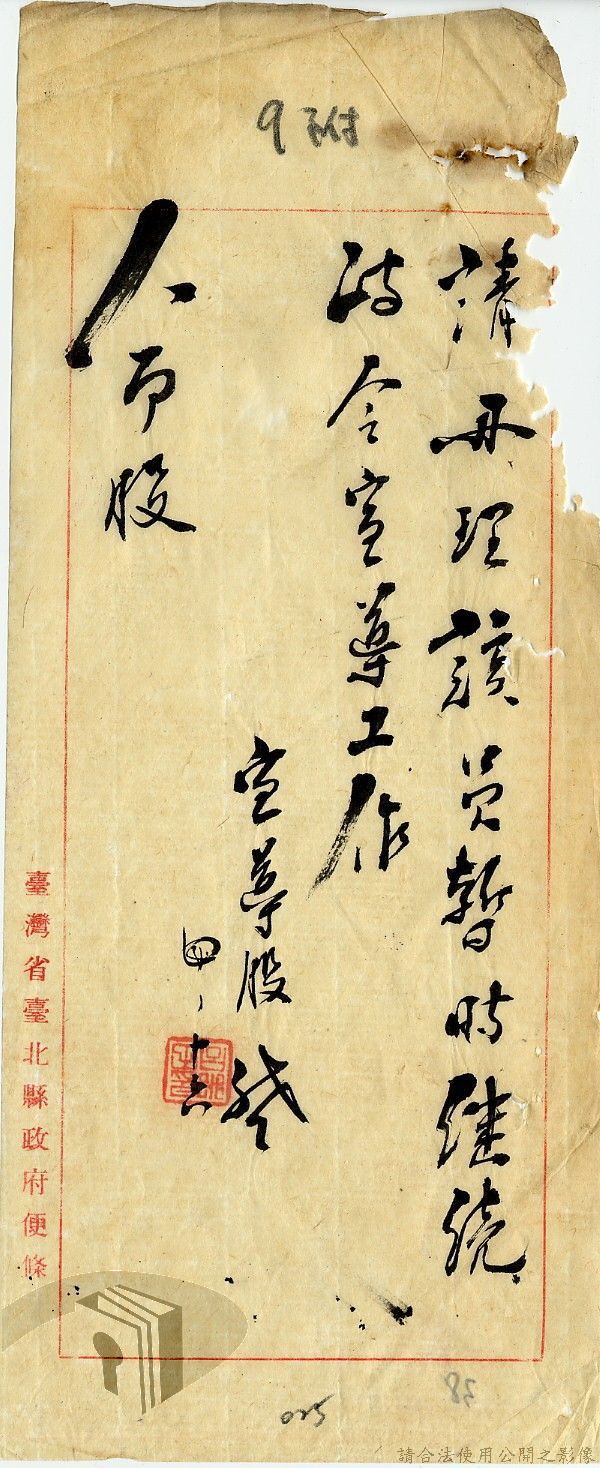 9 附
請再理該員暫時继续
政令宣導工作
宣導股
四、十六
人事股
臺灣省臺北縣政府便條
025
請合法使用公開之影像